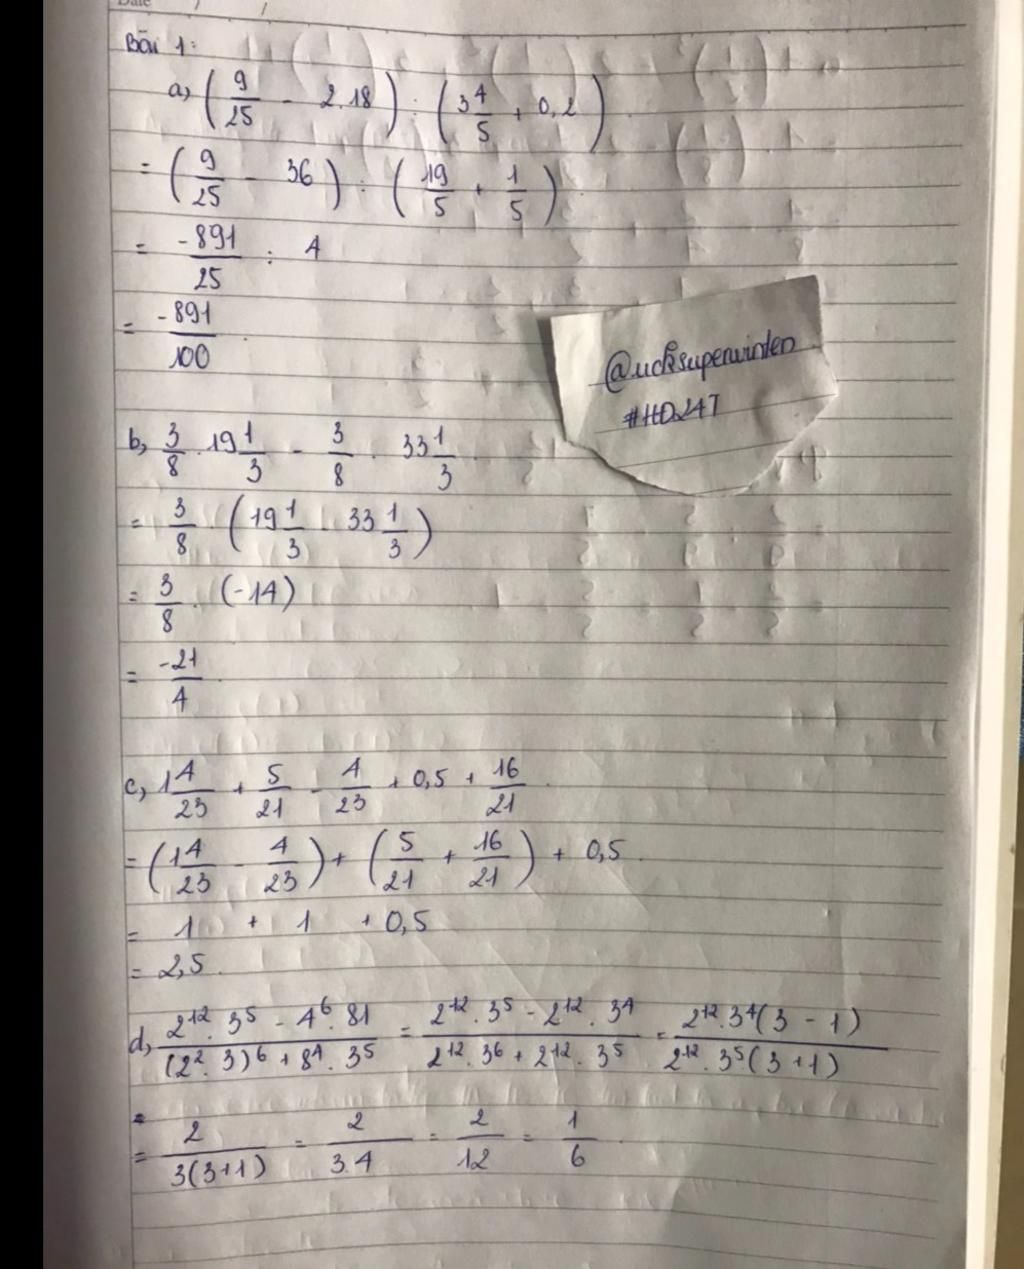 Date / /
Bài 1:
a, (9/25 - 2.18) : (3 4/5 + 0,2)
= (9/25 - 36) : (19/5 + 1/5)
= -891/25 : 4
= -891/100
@ucksuperwinten
#HD247
b, 3/8 . 19 1/3 - 3/8 . 33 1/3
= 3/8 . (19 1/3 - 33 1/3)
= 3/8 . (-14)
= -21/4
c, 1 4/23 + 5/21 - 4/23 + 0,5 + 16/21
= (1 4/23 - 4/23) + (5/21 + 16/21) + 0,5
= 1 + 1 + 0,5
= 2,5
d, (2¹² . 3⁵ - 4⁶ . 81)/((2² . 3)⁶ + 8⁴ . 3⁵) = (2¹² . 3⁵ - 2¹² . 3⁴)/(2¹² . 3⁶ + 2¹² . 3⁵) = (2¹² . 3⁴(3 - 1))/(2¹² . 3⁵(3 + 1))
= 2/(3(3+1)) = 2/(3.4) = 2/12 = 1/6